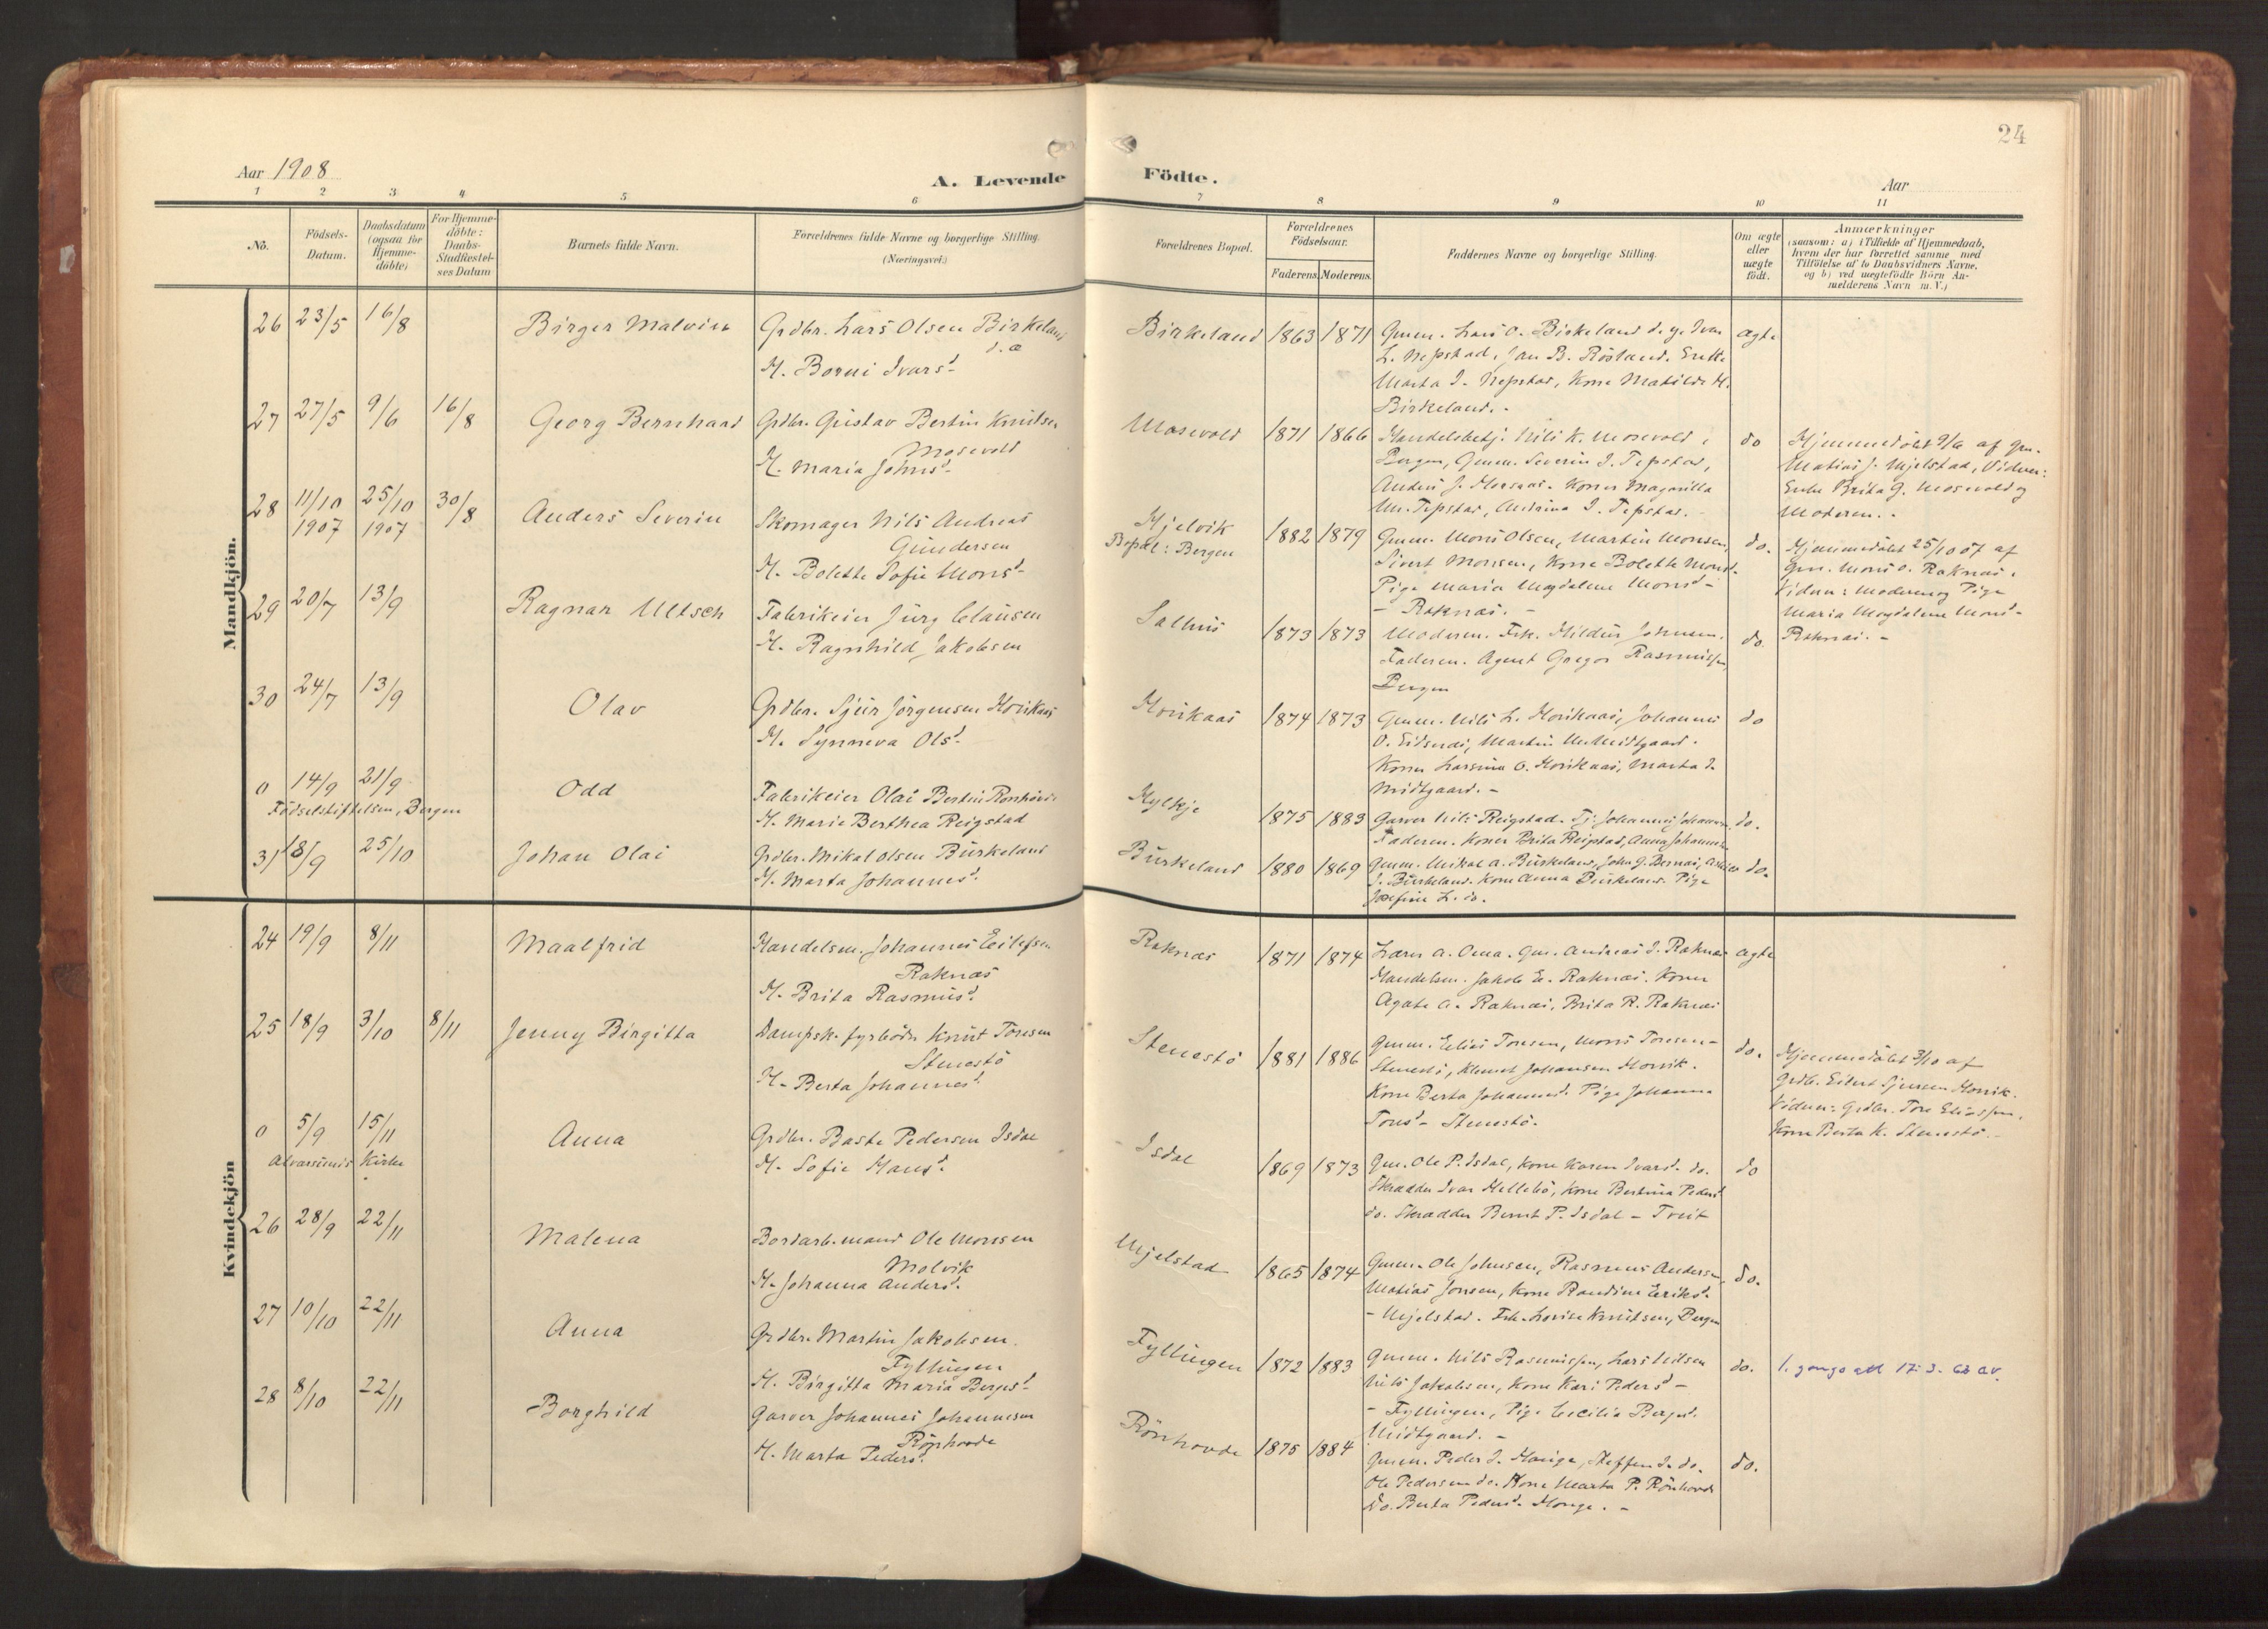 24
Aar 1908
A. Levende
Födte.
Aar
1 2 3 4 5 6
7 8 9 10 11
No.
Födsels-
Datum.
Daabsdatum
(ogsaa for
Hjemme-
döbte)
For Hjemme-
döbte:
Daabs-
Stadfæstel-
ses Datum
Barnets fulde Navn.
Forældrenes fulde Navne og borgerlige Stilling.
(Næringsvei.)
Forældrenes Bopæl.
Forældrenes
Födselsaar.
Faderens.
Moderens.
Faddernes Navne og borgerlige Stilling.
Om ægte
eller
uægte
födt.
Anmærkninger
(saasom: a) i Tilfælde af Hjemmedaab,
hvem der har forrettet samme med
Tilföielse af to Daabsvidners Navne,
og b) ved uægtefödte Börn An-
melderens Navn m. V.)
Mandkjön.
26 23/5 16/8 Birger Malvin
Grdbr. Lars Olsen Birkeland
H. Borni Ivarsd.
Birkeland 1863 1871
Gmm. Lars O. Birkeland d.y. Ivar
L. Nepstad, Jan B. Röstand. Enke
Marta I. Nepstad, Kone Matilde H.
Birkeland.-
ægte
27 27/5 9/6 16/8 Georg Bernhard
Grdbr. Gustav Bertin Knutsen
Mosevold
H. Maria Johnsd.
Mosevold 1871 1866
Handelsbetj. Nils K. Mosevold,
Bergen, Gmm. Severin I. Tepstad,
Anders J. Konen Magnilla
M. Tepstad, Andrina I. Tepstad.-
do
Hjemmedöbt 9/6 af Gm.
Matias J. Mjelstad, Vidner:
Enke Brita G. Mosevold og
Moderen.-
28 11/10 1907 25/10 1907 30/8 Anders Severin
Skomager Nils Andreas
Gundersen
H. Bolette Sofie Monsd.
Hjelvik
Bopæl: Bergen 1882 1879
Gmm. Mons Olsen, Martin Monsen,
Sivert Monsen, Kone Bolette Monsd.
Pige Maria Magdalene Monsd-
- Raknæs.-
do.
Hjemmedöbt 25/10 07 af
Gm. Mons O. Raknæs.
Vidner: Moderen og Pige
Maria Magdalene Monsd-
Raknæs.-
29 20/7 13/9 Ragnar Ultsch
Fabrikeier Jürg Clausen
H. Ragnhild Jakobsen
Salhus 1873 1873
Moderen. Frk. Hildur Johnsen.
Faderen. Agent Gregor Rasmussen,
Bergen
do.
30 24/7 13/9 Olav
Grdbr. Sjur Jörgensen Hovikaas
H. Synneva Olsd.
Hovikaas 1874 1873
Gmm. Nils L. Hovikaas, Johannes
O. Eidsnæs, Martin M. Midtgaard.
Konen Larsina O. Hovikaas, Marta I.
Midtgaard.-
do
0 14/9 21/9 Odd
Födselsstiftelsen, Bergen
Fabrikeier Olai Bertin Ronhovde
H. Marie Berthea Reigstad
Hylkje 1875 1883
Garver Nils Reigstad. Tj. Johannes Johannesen,
Faderen. Koner Brita Reigstad, Anna Johannesen
do.
31 18/9 25/10 Johan Olai
Grdbr. Mikal Olsen Burkeland
H. Marta Johannesd.
Burkeland 1880 1869
Gmm. Mikal A. Burkeland, John G. Bernæs,
J. Burkeland. Kone Anna Burkeland. Pige
Josefine L. do.
do.
Kvindekjön
24 19/9 8/11 Maalfrid
Handelsm. Johannes Eilefsen
Raknæs
H. Brita Rasmusd.
Raknæs 1871 1874
Lærer A. Oma. Gm. Andreas J. Raknæs
Handelsm. Jakob E. Raknæs. Koner
Agate A. Raknæs, Brita R. Raknæs
ægte
25 18/9 3/10 8/11 Jenny Birgitta
Dampsk. fyrböder Knut Toresen
Stenestö
H. Berta Johannesd.
Stenestö 1881 1886
Gmm. Elias Toresen, Mons Toresen-
Stenestö, Klemet Johansen Horvik.
Kone Berta Johannesd. Pige Johanna
Torsd- Stenestö.
do.
Hjemmedöbt 3/10 af
Grdb. Eilert Sjursen Horvik.
Vidner: Grdbr. Tore Eliassen,
Kone Berta K. Stenestö.-
0 5/9 15/11 Anna
Alversunds Kirke
Grdbr. Baste Pedersen Isdal
H. Sofie Hansd.
Isdal 1869 1873
Gm. Ole P. Isdal, Kone Karen Ivarsd. do.
Skrædder Ivar Hellebö, Kone Bertina Pedersd.
do. Skrædder Bernt P. Isdal - Tveit
do
26 28/9 22/11 Malena
Bordarb.mand Ole Monsen
Molvik
H. Johanna Andersd.
Mjelstad 1865 1874
Gmm. Ole Johnsen, Rasmus Andersen,
Matias Jonsen, Kone Randine Eriksd.
- Mjelstad. Frk. Lovise Knutsen, Bergen
do.
27 10/10 22/11 Anna
Grdbr. Martin Jakobsen
Fyllingen
H. Birgitta Maria Bergesd.
Fyllingen 1872 1883
Gmm. Nils Rasmussen, Lars Nilsen
Nils Jakobsen, Kone Kari Pedersd-
- Fyllingen, Pige Cecilia Bergesd.
Midtgaard.-
do.
1. gangs att 17-3-63 av.
28 8/10 22/11 Borghild
Garver Johannes Johannesen
Rönhovde
H. Marta Pedersd.
Rönhovde 1875 1884
Gmm. Peder J. Hauge, Steffen J. do.
Ole Pedersen do. Kone Marta P. Rönhovde
do. Berta Pedersd. Hauge.-
do.